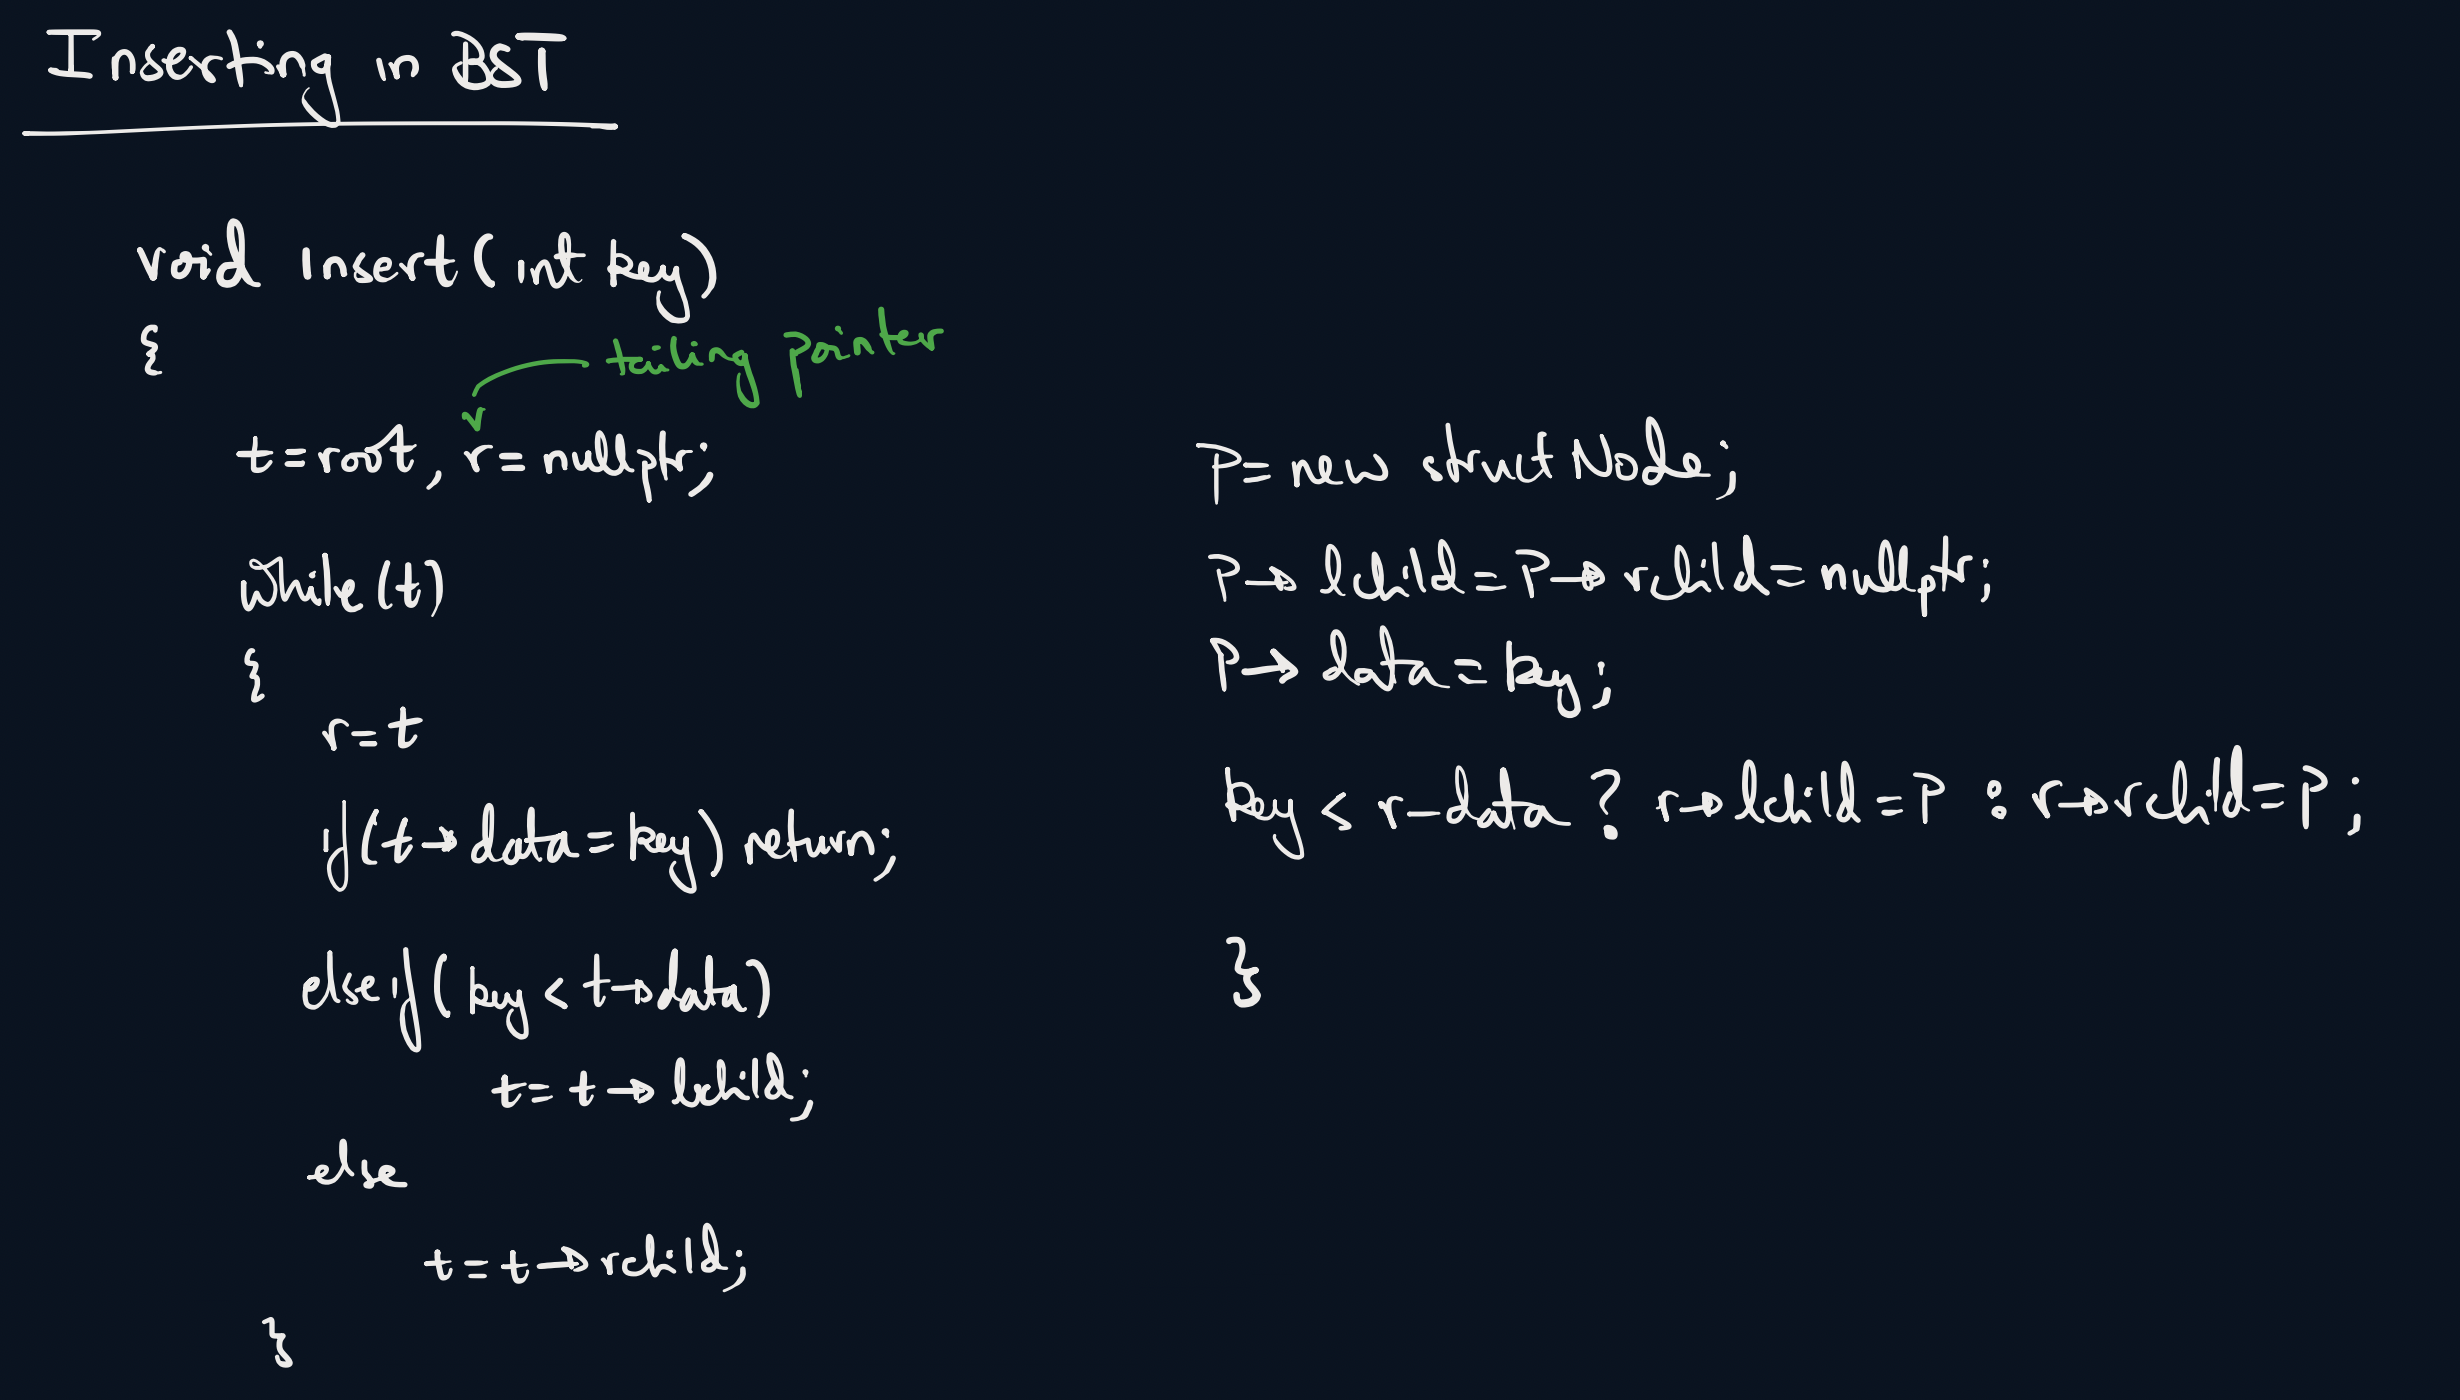 Inserting in BST
void Insert(int key)
{
tailing pointer
t=root, r=nullptr;
while(t)
{
r=t
if(t→data=key) return;
else if(key < t→data)
t= t→lchild;
else
t=t→rchild;
}
P= new struct Node;
P→lchild=P→rchild=nullptr;
P→data=key;
key < r-data ? r→lchild=P : r→rchild=P;
}